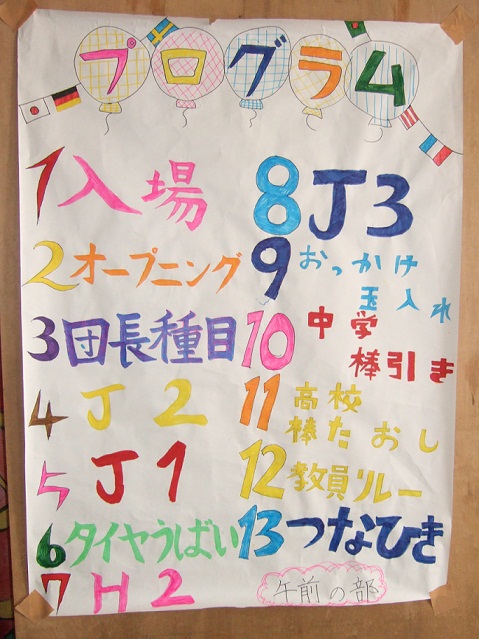 プログラム
1入場
2オープニング
3団長種目
4 J 2
5 J 1
6タイヤうばい
7 H 2
8 J 3
9おっかけ
玉入れ
10中学
棒引き
11高校
棒たおし
12教員リレー
13つなひき
午前の部